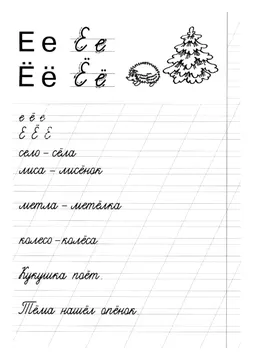 Е е Е е
Ё ё Ё ё
е ё е
Е Ё Ё
село – сёла
лиса – лисёнок
метла – метёлка
колесо – колёса
Кукушка поёт.
Тёма нашёл опёнок.